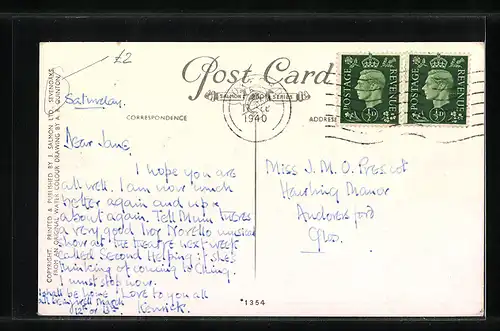 £2
Post Card
SALMON SERIES
CORRESPONDENCE
ADDRESS
1940
POSTAGE REVENUE
½D
POSTAGE REVENUE
½D
COPYRIGHT. PRINTED & PUBLISHED BY J. SALMON LTD., SEVENOAKS.
FROM AN ORIGINAL WATER COLOUR DRAWING BY A. R. QUINTON
Saturday.
Dear Jane,
I hope you are
all well. I am now much
better again and up &
about again. Tell Mum theres
a very good Ivor Novello musical
show at the theatre next week
called Second Helping if she's
thinking of coming to
I must stop now.
I shall be home
Love to you all
12th or 13th.
Miss J. M. O. Prescot
Manor
Andoversford
Glos.
*1354